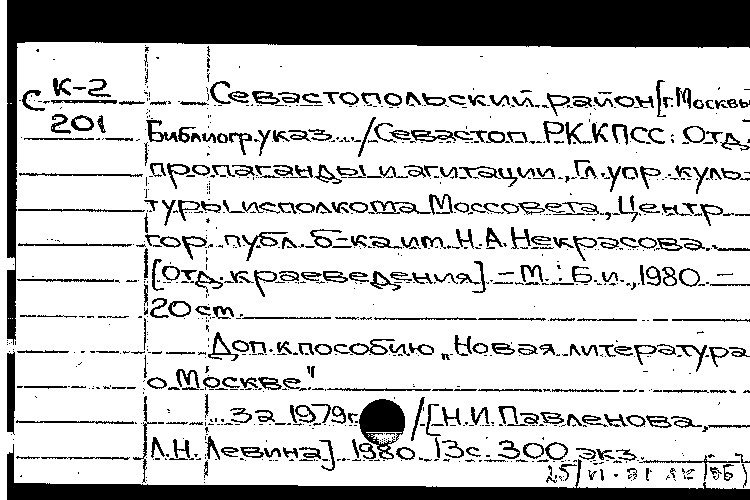 С К-2
201
Севастопольский район [г. Москвы
Библиогр. указ... / Севастоп. РК КПСС. Отд.
пропаганды и агитации, Гл. упр. куль-
туры исполкома Моссовета, Центр.
гор. публ. б-ка им. Н.А. Некрасова.
[Отд. краеведения]. – М. : Б.и., 1980. –
20 см.
Доп. к пособию „Новая литература
о Москве"
...за 1979г. / [Н.И. Павленова,
Л.Н. Левина]. 1980. 13с. 300 экз.
25/VI-81